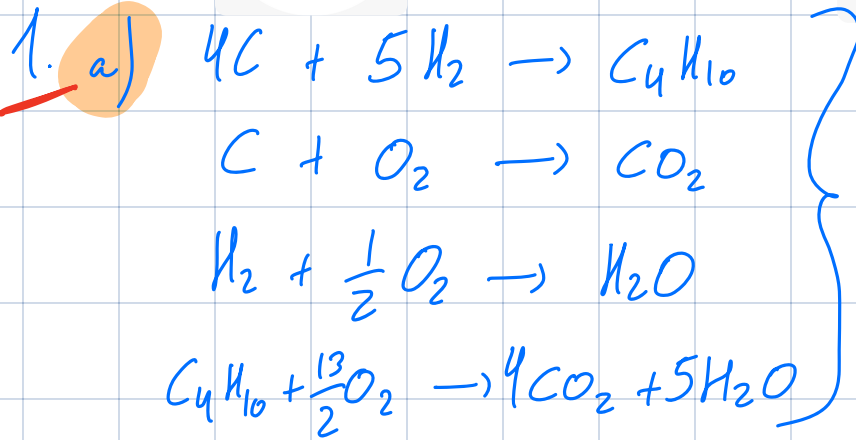 1. a) 4C + 5H₂ → C₄H₁₀
C + O₂ → CO₂
H₂ + 1/2 O₂ → H₂O
C₄H₁₀ + 13/2 O₂ → 4CO₂ + 5H₂O